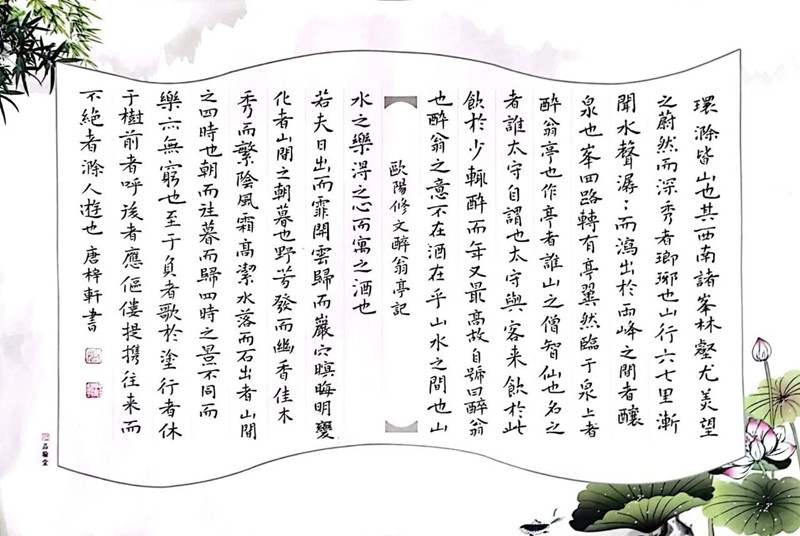 環滁皆山也其西南諸峯林壑尤美望
之蔚然而深秀者瑯琊也山行六七里漸
聞水聲潺：而瀉出於兩峰之間者釀
泉也峯回路轉有亭翼然臨于泉上者
醉翁亭也作亭者誰山之僧智仙也名之
者誰太守自謂也太守與客来飲於此
飲於少輒醉而年又最高故自號曰醉翁
也醉翁之意不在酒在乎山水之間也山
歐陽修文醉翁亭記
水之樂得之心而寓之酒也
若夫日出而霏開雲歸而巖穴暝晦明變
化者山間之朝暮也野芳發而幽香佳木
秀而繁陰風霜高潔水落而石出者山間
之四時也朝而往暮而歸四時之景不同而
樂亦無窮也至于負者歌於塗行者休
于樹前者呼後者應傴僂提携往来而
不絕者滁人遊也 唐梓軒書
品翰堂